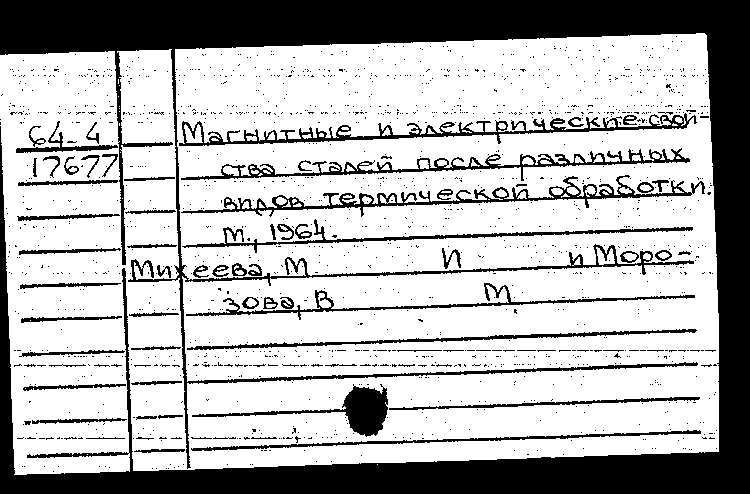 64-4 Магнитные и электрические свой-
17677 ства сталей после различных
видов термической обработки.
М., 1964.
Михеева, М И и Моро-
зова, В М